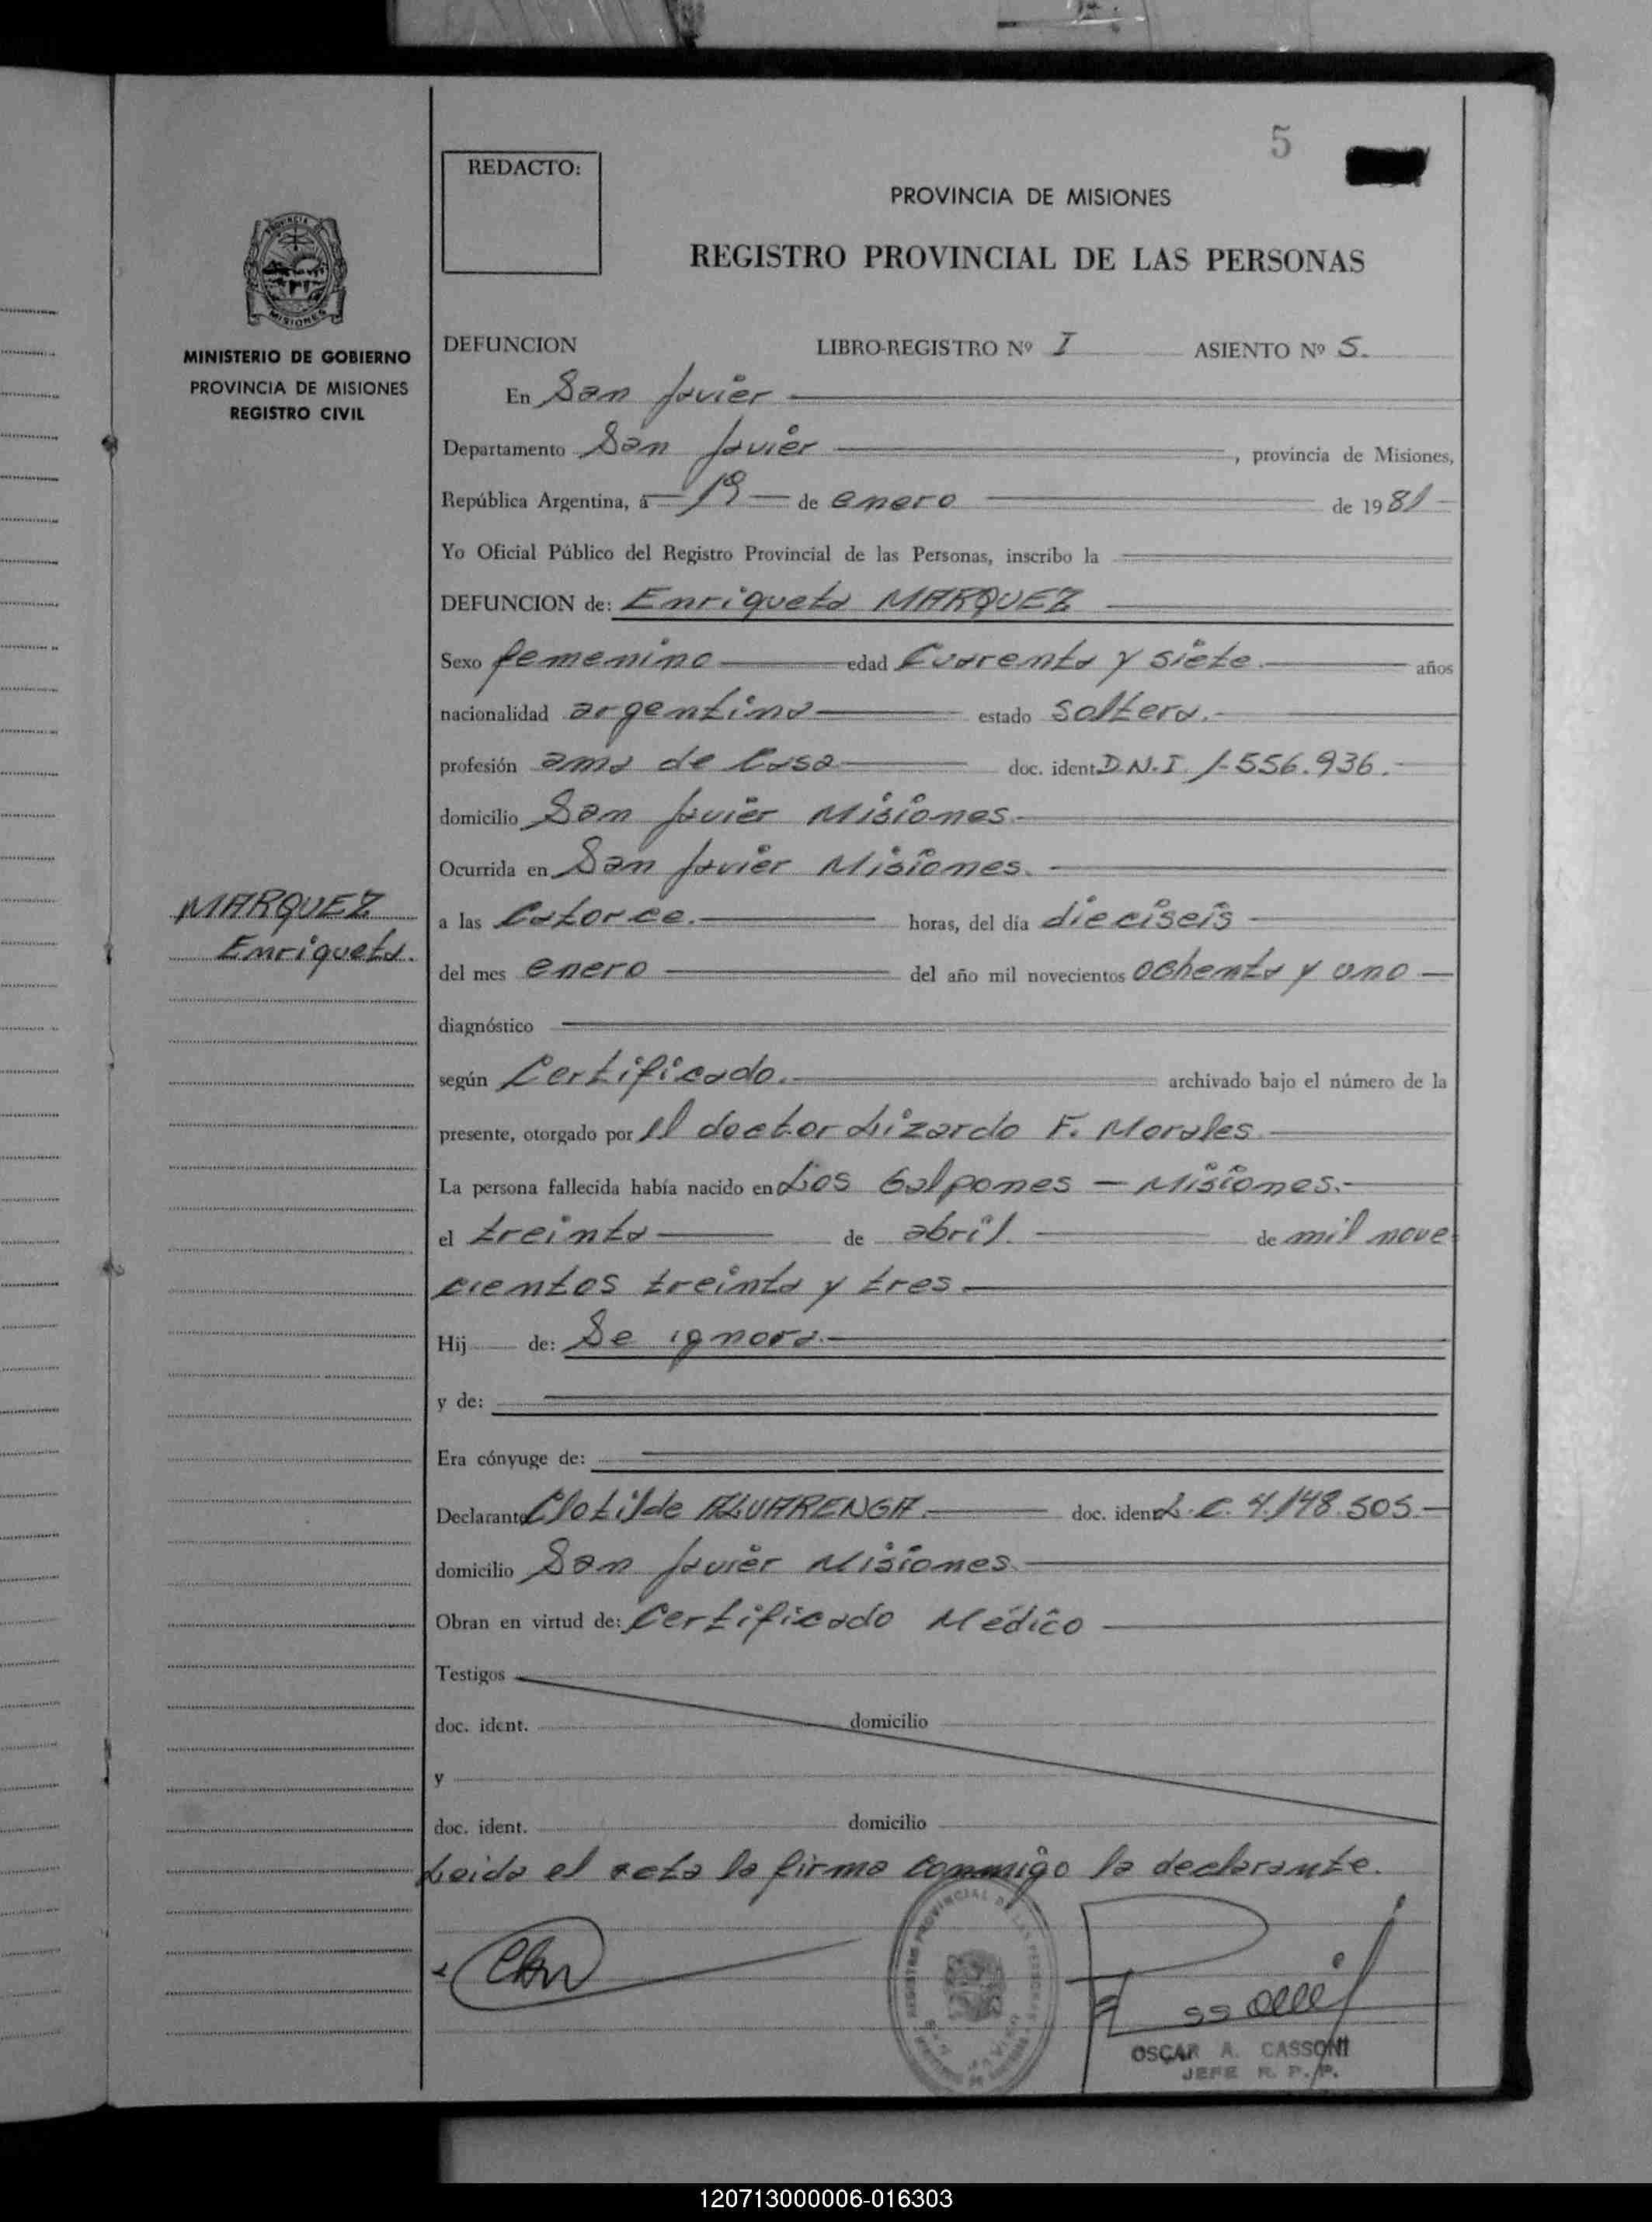 5
REDACTO:
PROVINCIA DE MISIONES
REGISTRO PROVINCIAL DE LAS PERSONAS
MINISTERIO DE GOBIERNO
PROVINCIA DE MISIONES
REGISTRO CIVIL
DEFUNCION LIBRO-REGISTRO Nº I ASIENTO Nº 5.
En San Javier
Departamento San Javier, provincia de Misiones,
República Argentina, a 19 de enero de 1981
Yo Oficial Público del Registro Provincial de las Personas, inscribo la
DEFUNCION de: Enriqueta MARQUEZ
Sexo femenino edad Cuarenta y siete. años
nacionalidad argentina estado Soltera.
profesión ama de Casa doc. ident. D.N.I. 1.556.936.
domicilio San Javier Misiones.
Ocurrida en San Javier Misiones.
MARQUEZ
Enriqueta.
a las Catorce. horas, del día dieciseis
del mes enero del año mil novecientos ochenta y uno
diagnóstico
según Certificado. archivado bajo el número de la
presente, otorgado por el doctor Lizardo F. Morales
La persona fallecida había nacido en Los Galpones - Misiones.
el treinta de abril de mil nove
cientos treinta y tres
Hij de: Se ignora.
y de:
Era cónyuge de:
Declarante Clotilde ALVARENGA. doc. ident. L.C. 4.148.505
domicilio San Javier Misiones.
Obran en virtud de: Certificado Médico
Testigos
doc. ident. domicilio
y
doc. ident. domicilio
Leida el acta la firma conmigo la declarante.
OSCAR A. CASSONI
JEFE R. P. P.
120713000006-016303